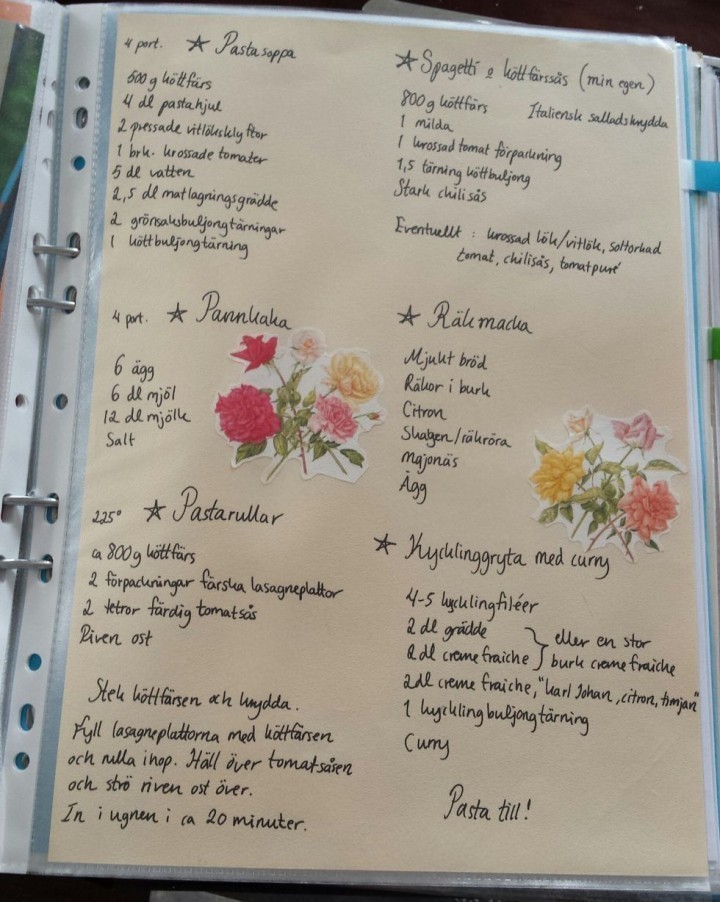 4 port. ☆ Pastasoppa
500g köttfärs
4 dl pastahjul
2 pressade vitlöksklyftor
1 brk. krossade tomater
5 dl vatten
2,5 dl matlagningsgrädde
2 grönsaksbuljongtärningar
1 köttbuljongtärning
4 port. ☆ Pannkaka
6 ägg
6 dl mjöl
12 dl mjölk
Salt
225° ☆ Pastarullar
ca 800g köttfärs
2 förpackningar färska lasagneplattor
2 tetror färdig tomatsås
Riven ost
Stek köttfärsen och krydda.
Fyll lasagneplattorna med köttfärsen
och rulla ihop. Häll över tomatsåsen
och strö riven ost över.
In i ugnen i ca 20 minuter.
☆ Spagetti o köttfärssås (min egen)
800g köttfärs
Italiensk salladskrydda
1 milda
1 krossad tomat förpackning
1,5 tärning köttbuljong
Stark chilisås
Eventuellt : krossad lök/vitlök, soltorkad
tomat, chilisås, tomatpuré
☆ Räkmacka
Mjukt bröd
Räkor i burk
Citron
Skagen/räkröra
Majonäs
Ägg
☆ Kycklinggryta med curry
4-5 kycklingfiléer
2 dl grädde
2 dl creme fraiche } eller en stor
burk creme fraiche
2dl creme fraiche, "karl Johan, citron, timjan"
1 kycklingbuljongtärning
Curry
Pasta till!